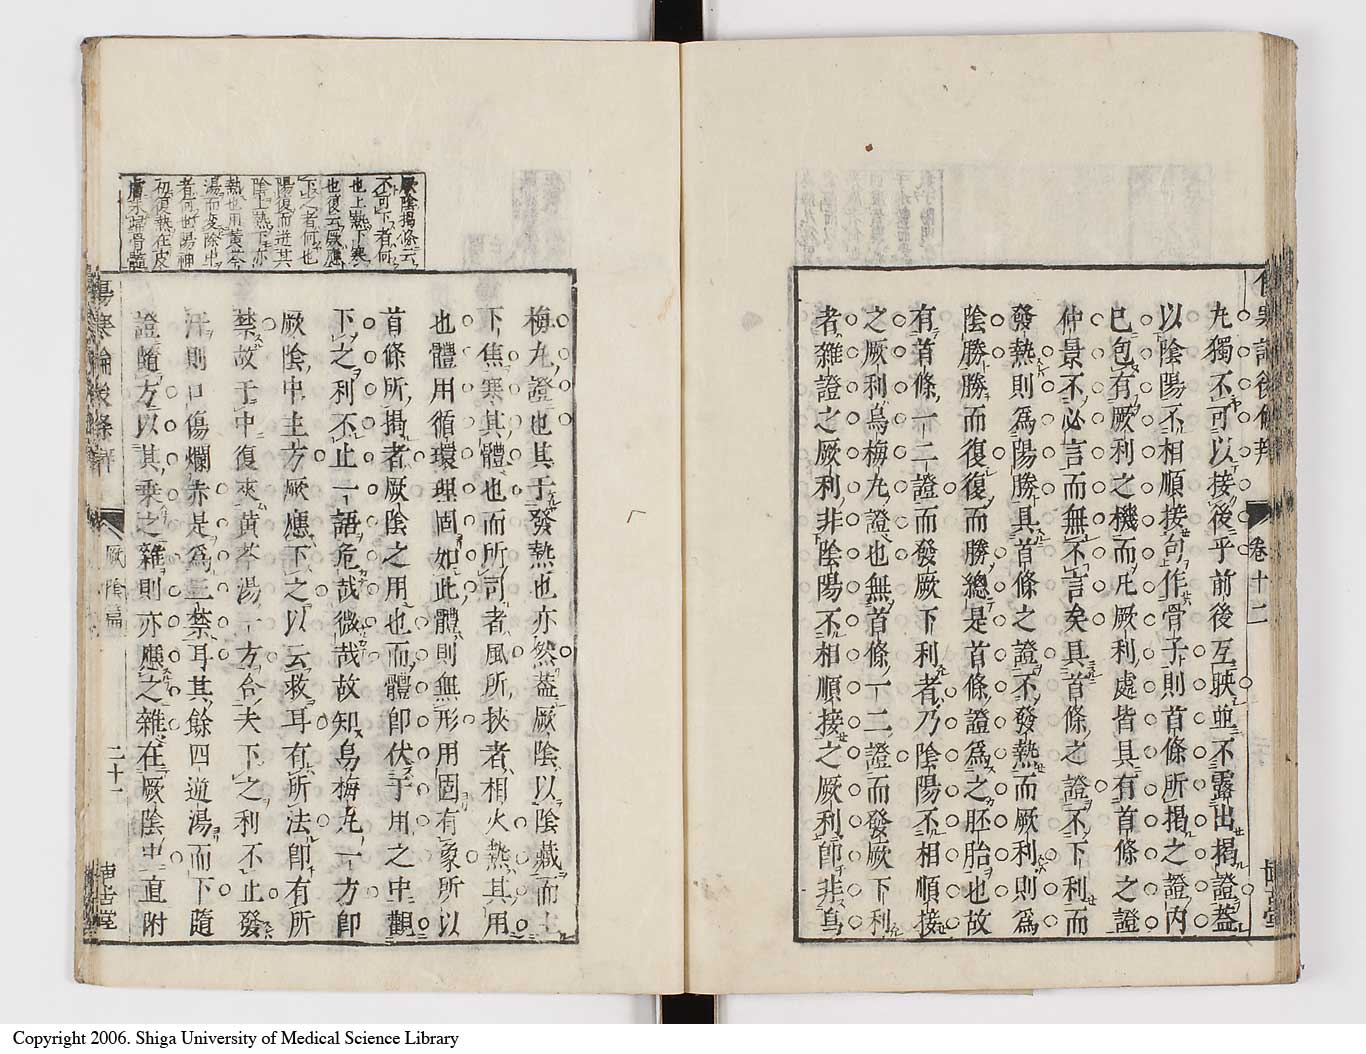 丸獨不可以接後乎前後互映並不露出揭證葢
以陰陽不相順接句作骨子則首條所揭之證內
已包有厥利之機而凡厥利處皆具有首條之證
仲景不必言而無不言矣具首條之證不下利而
發熱則爲陽勝具首條之證不發熱而厥利則爲
陰勝勝而復復而勝總是首條證爲之胚胎也故
有首條一二證而發厥下利者乃陰陽不相順接
之厥利烏梅丸證也無首條一二證而發厥下利
者雜證之厥利非陰陽不相順接之厥利卽非烏
卷十二
厥陰揭條云
不可下者何
也上熱下寒
也復云厥應
下之者何也
陽復而逆其
陰上熱下亦
熱也用黃芩
湯而变除中
者何也陽神
初復熱在皮
膚未歸骨髓
梅丸證也其于發熱也亦然葢厥陰以陰藏而主
下焦寒其體也而所司者風所挾者相火熱其用
也體用循環理固如此體則無形用固有象所以
首條所揭者厥陰之用也而體卽伏于用之中觀
下之利不止一語危哉微哉故知烏梅丸一方卽
厥陰中主方厥應下之以云救耳有所法卽有所
禁故于中復夾黃芩湯一方合夫下之利不止發
汗則口傷爛赤是爲三禁耳其餘四逆湯而下隨
證隨方以其乘之雜則亦應之雜在厥陰中直附
傷寒論後條辨
厥陰篇
二十一